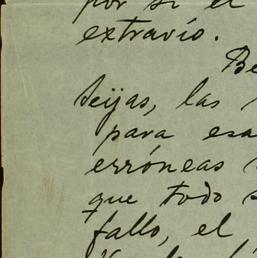 por si el
extravío.
Be
teijas, las
para esa
erróneas
que todo s
fallo, el